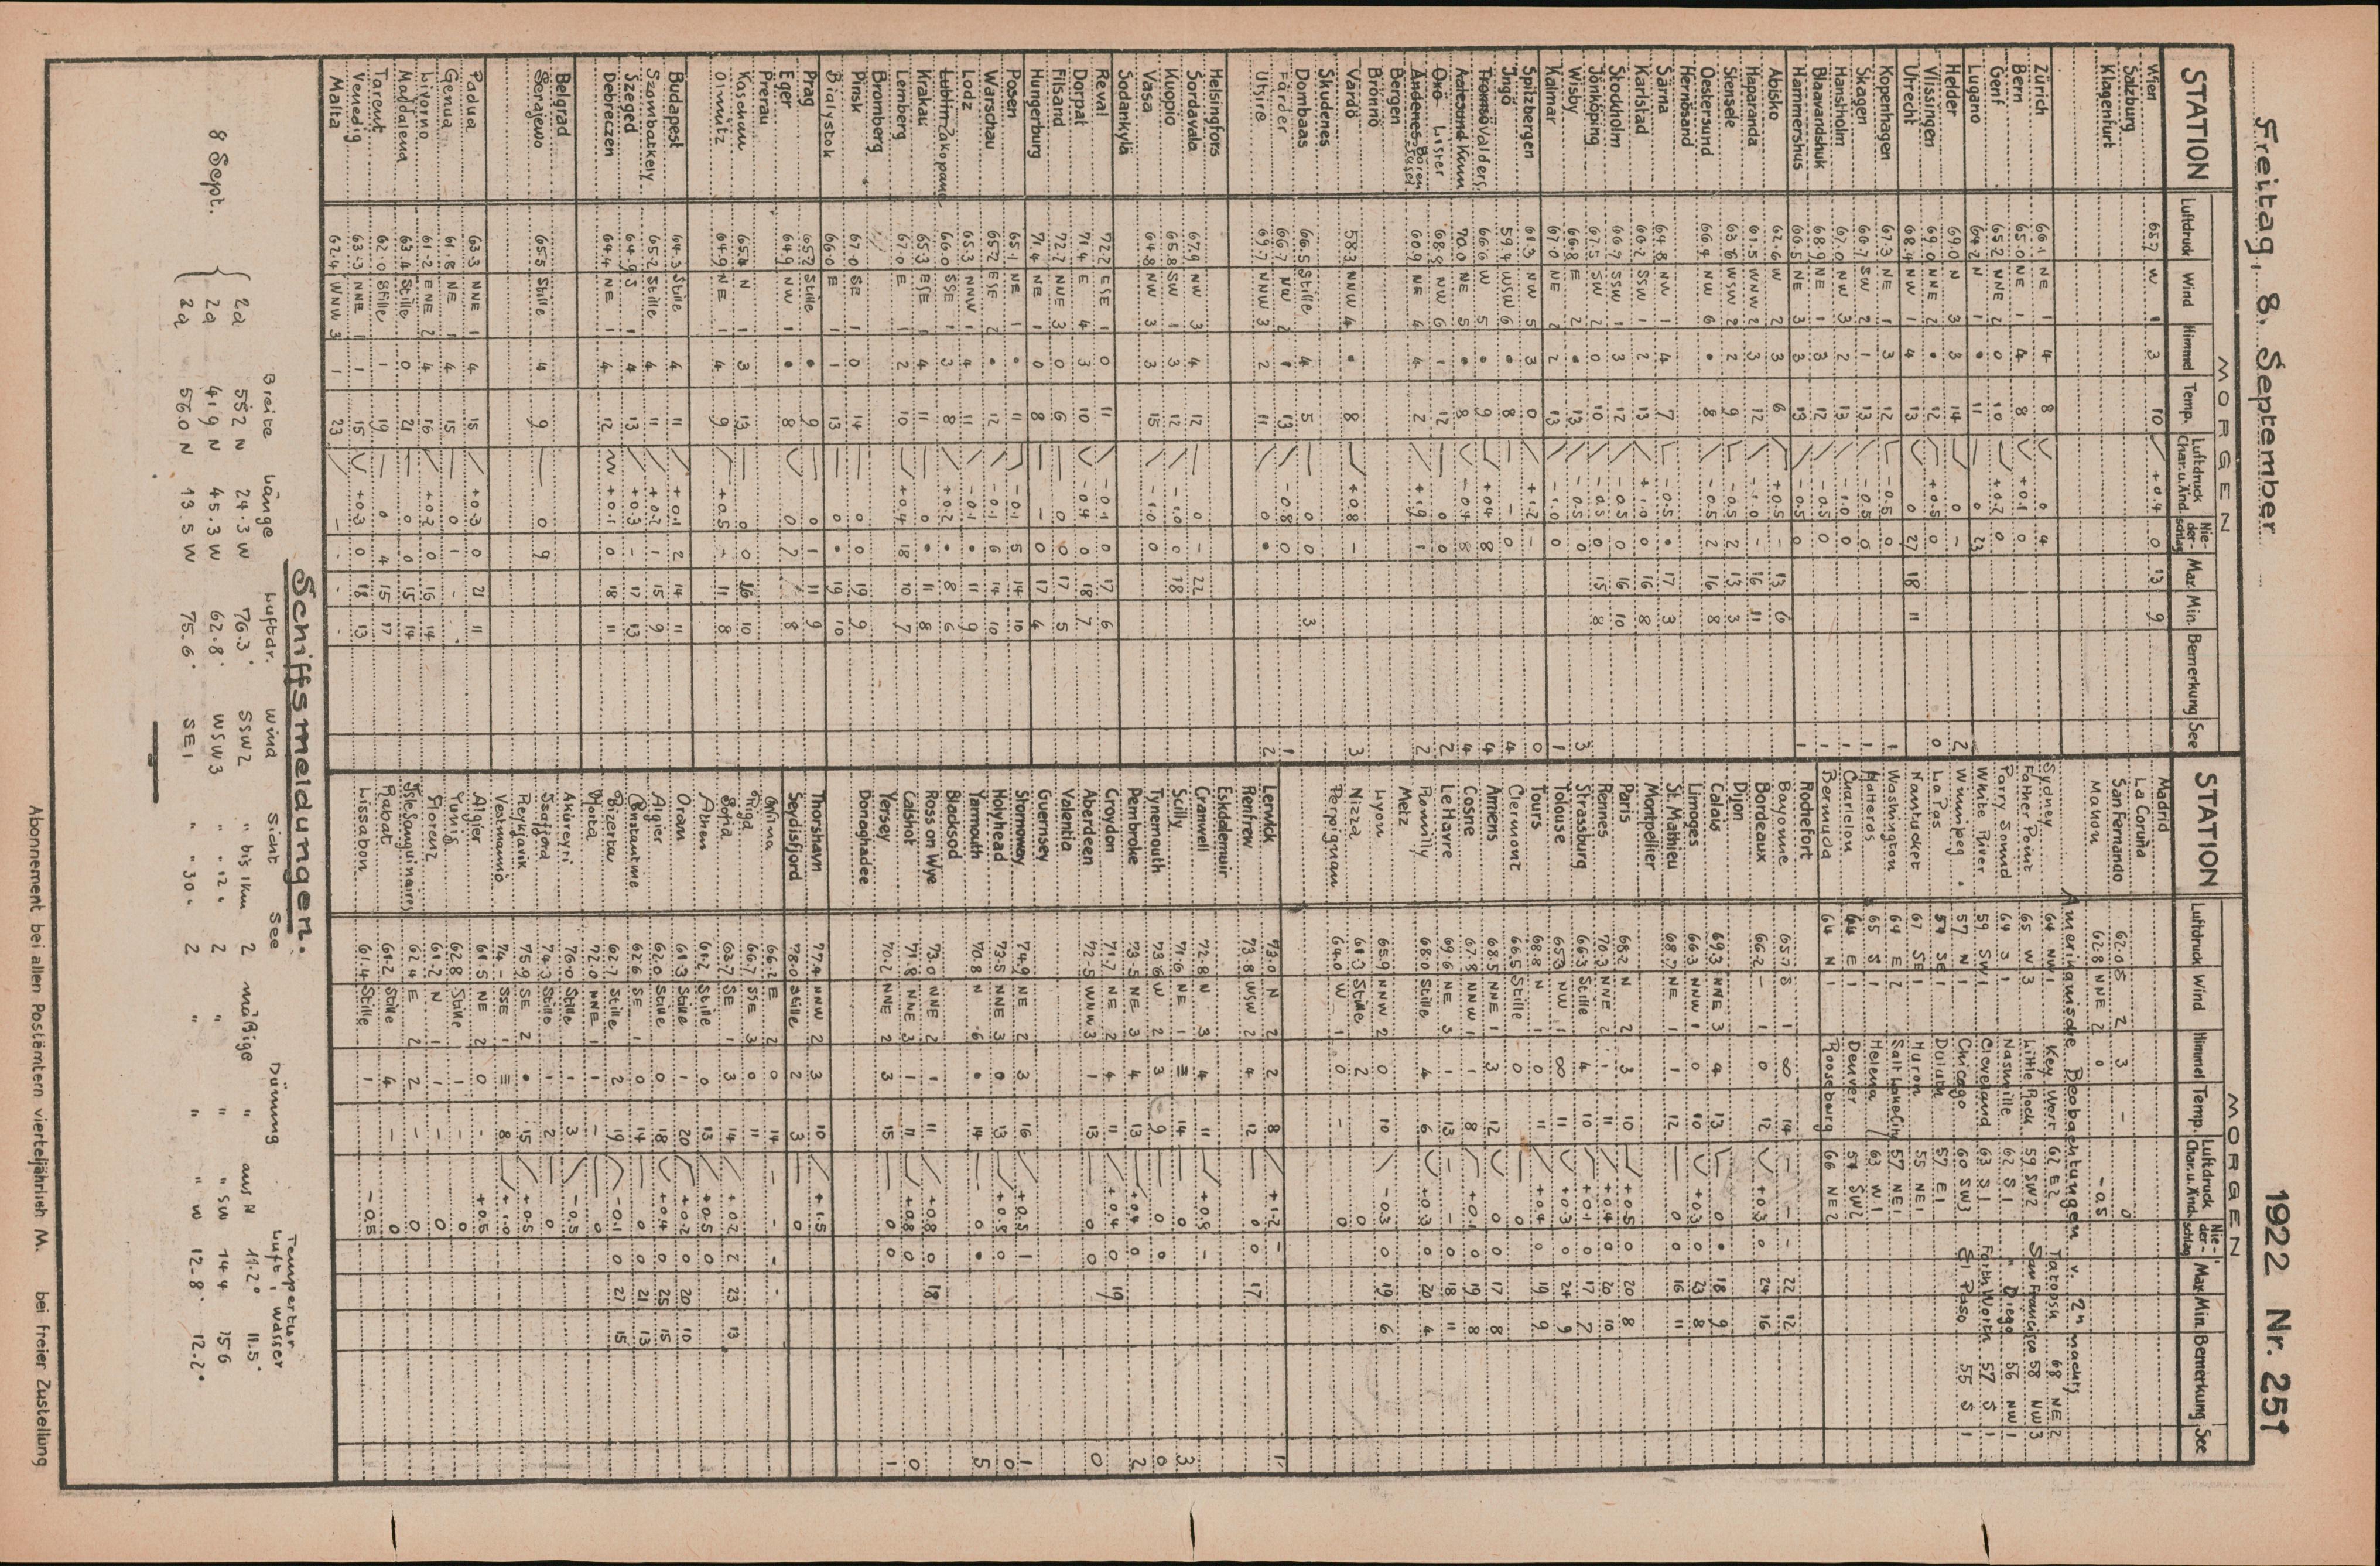 Freitag, 8. September 1922 Nr. 251
MORGEN
STATION Luftdruck Wind Himmel Temp. Luftdruck Char. u. Änd. Nie-der-schlag Max Min. Bemerkung See
Wien 65.7 W 1 3 10 +0.4 0 13 9
Salzburg
Klagenfurt
Zürich 66.1 NE 1 4 8 0 4
Bern 65.0 NE 1 4 8 +0.1 0
Genf 65.2 NNE 2 0 10 +0.2 0
Lugano 64.2 N 1 • 11 0 23
Helder 69.0 N 3 3 14 0 - 2
Vlissingen 69.0 NNE 2 • 12 +0.5 0 0
Utrecht 68.4 NW 1 4 13 0 27 18 11
Kopenhagen 67.3 NE 1 3 12 -0.5 0 1
Skagen 66.7 SW 2 1 13 -0.5 0 1
Hanstholm 67.0 NW 3 2 13 -1.0 0 1
Blaavandshuk 68.9 NE 1 3 12 -0.5 0 1
Hammershus 66.5 NE 3 3 13 -0.5 0 1
Abisko 62.6 W 2 3 6 +0.5 - 13 6
Haparanda 61.5 WNW 2 3 12 -1.0 - 16 11
Stensele 63.6 WSW 2 2 9 -0.5 2 13 3
Oestersund 66.4 NW 6 • 8 -0.5 2 16 8
Hernösand
Särna 64.8 NW 1 4 7 -0.5 • 17 3
Karlstad 66.2 SSW 1 2 13 +1.0 0 16 8
Stockholm 66.7 SSW 1 3 12 -0.5 0 16 10
Jönköping 67.5 SW 2 0 10 -0.5 0 15 8
Wisby 66.8 E 2 • 13 -0.5 0 3
Kalmar 67.0 NE 2 2 13 -1.0 0 1
Spitzbergen 61.3 NW 5 3 0 +1.2 - 0
Ingö 59.4 WSW 6 • 8 - 0 4
Valders. 66.6 W 5 • 9 +0.4 8 4
Kinn 70.0 NE 5 • 8 -0.4 8 4
Lister 68.9 NW 6 1 12 0 0 2
60.9 NE 4 4 2 +1.9 1 2
Bergen
Brönnö
Vardö 58.3 NNW 4 • 8 +0.8 - 3
Skudenes
Dombaas 66.5 Stille 4 5 0 0 3
Färder 66.7 NW 2 1 13 -0.8 0 1
Utsire 69.7 NNW 3 2 11 0 • 2
Helsingfors
Sordavala 67.9 NW 3 4 12 0 - 22
Kuopio 65.8 SW 1 3 12 -1.0 0 18
Vasa 64.8 NW 3 3 15 -1.0 0
Sodankylä
Reval 72.2 ESE 1 0 11 -0.1 0 17 6
Dorpat 71.4 E 4 3 10 -0.4 0 18 7
Filsand 72.2 NNE 3 0 6 0 17 5
Hungerburg 71.4 NE 1 0 8 - 0 17 4
Posen 65.1 NE 1 • 11 -0.1 5 14 10
Warschau 65.2 ESE 2 • 12 -0.1 6 14 10
Lodz 65.3 NNW 1 4 11 -0.1 • 11 9
Zakopane 66.0 SSE 1 3 8 +0.2 • 8 6
Krakau 65.3 ESE 1 4 11 0 • 11 8
Lemberg 67.0 E 1 2 10 +0.4 18 10 7
Bromberg
Pinsk 67.0 SE 1 0 14 0 0 19 9
Bialystok 66.0 E 1 1 13 0 • 19 10
Prag 65.2 Stille • 9 0 1 11 9
Eger 64.9 NW 1 • 8 0 7 8
Prerau
Kaschau 65.4 N 1 3 13 0 0 16 10
Olmütz 64.9 NE 1 4 9 +0.5 - 11 8
Budapest 64.3 Stille 4 11 +0.1 2 14 11
Szombathely 65.2 Stille 4 11 +0.2 1 15 9
Szeged 64.9 S 1 4 13 +0.3 - 17 13
Debreczen 64.4 NE 1 4 12 +0.1 0 18 11
Belgrad
Serajewo 65.5 Stille 4 9 0 9
Padua 63.3 NNE 1 4 15 +0.3 0 21 11
Genua 61.8 NE 1 4 15 0 1 -
Livorno 61.2 ENE 2 4 16 +0.2 0 16 14
Maddalena 63.4 Stille 0 21 0 0 15 14
Tarent 62.0 Stille 1 19 0 4 15 17
Venedig 63.3 NNE 1 1 15 +0.3 0 18 13
Malta 62.4 WNW 3 1 23 - - - -
MORGEN
STATION Luftdruck Wind Himmel Temp. Luftdruck Char. u. Änd. Nie-der-schlag Max Min. Bemerkung See
Madrid
La Coruña
San Fernando 62.0 S 2 3 - 0
Mahon 62.8 NNE 2 0 -0.5
Amerikanische Beobachtungen v. 2h nachts
Sydney 64 NW 1 Key West 62 E 2 Tatoosh 68 NE 2
Father Point 65 W 3 Little Rock 59 SW 2 San Francisco 58 NW 3
Parry Sound 64 S 1 Nashville 62 S 1 " Diego 56 NW 1
White River 59 SW 1 Cleveland 63 S 1 Forth Worth 57 S 1
Winnipeg 57 N 1 Chicago 60 SW 3 El Paso 55 S 1
La Pas 54 SE 1 Duluth 57 E 1
Nantucket 67 SE 1 Huron 55 NE 1
Washington 64 E 2 Salt Lake City 57 NE 1
Hatteras 65 S 1 Helena 63 W 1
Charleton 64 E 1 Denver 54 SW 2
Bermuda 64 N 1 Roosebørg 66 NE 2
Rochefort
Bayonne 65.7 S 1 ∞ 14 - - 22 12
Bordeaux 66.2 - 1 0 12 +0.3 0 24 16
Dijon
Calais 69.3 NNE 3 4 13 0 • 18 9
Limoges 66.3 NNW 1 0 10 +0.3 0 23 8
St. Mathieu 68.7 NE 1 1 12 0 0 16 11
Montpellier
Paris 68.2 N 2 3 10 +0.5 0 20 8
Rennes 70.3 NNE 2 1 11 +0.4 0 20 10
Strassburg 66.3 Stille 4 10 +0.1 0 17 7
Tolouse 65.3 NW 1 ∞ 11 +0.3 0 24 9
Tours 68.8 N 1 0 11 +0.4 0 19 9
Clermont 66.5 Stille 0 0
Amiens 68.5 NNE 1 3 12 0 0 17 8
Cosne 67.8 NNW 1 1 8 +0.1 0 19 8
Le Havre 69.6 NE 3 1 13 - 0 18 11
Romilly 68.0 Stille 4 6 +0.3 0 20 4
Metz
Lyon 65.9 NNW 2 0 10 -0.3 0 19 6
Nizza 61.3 Stille 2 0
Perpignan 64.0 W 1 0 - 0
Lerwick 73.0 N 2 2 8 +1.2 - 1
Renfrew 73.8 WSW 2 4 12 0 0 17
Eskdalemuir
Cranwell 72.8 N 3 4 11 +0.9 -
Scilly 71.6 NE 1 ≡ 14 0 3
Tynemouth 73.6 W 2 3 9 0 • 0
Pembroke 73.5 NE 3 4 13 +0.4 0 2
Croydon 71.7 NE 2 4 11 +0.4 19
Aberdeen 72.5 WNW 3 1 13 0 0 0
Valentia
Guernsey
Stornoway 74.9 NE 2 3 16 +0.5 1 1
Holyhead 73.5 NNE 3 0 13 +0.8 0 0
Yarmouth 70.8 N 6 • 14 0 • 5
Blacksod
Ross on Wye 73.0 NNE 2 1 11 +0.8 0 18
Calshot 71.8 NNE 3 1 11 +0.8 0 0
Yersey 70.2 NNE 2 3 15 0 0 1
Donaghadee
Thorshavn 77.4 NNW 2 3 10 +1.5
Seydisfjord 78.0 Stille 2 3 0
Wilna 66.2 E 2 0 14 - - -
Riga 66.7 SSE 3 0 11
Sofia 63.7 SE 1 3 14 +0.2 2 23 13
Athen 61.2 Stille 0 13 +0.5 0
Oran 61.3 Stille 1 20 +0.2 0 20 10
Algier 62.0 Stille 0 18 +0.4 0 25 15
Constantine 62.6 SE 1 0 14 0 0 21 13
Bizerta 62.7 Stille 2 19 -0.1 0 27 15
Horta 72.0 NNE 1 1 - 0
Akureyri 76.0 Stille 1 3 -0.5
Isafjord 74.3 Stille 1 2 0
Reykjavik 75.9 SE 2 • 15 +0.5
Vestmannö 74.- SSE 1 ≡ 8 +1.0
Algier 61.5 NE 2 0 - +0.5
Tunis 62.8 Stille 1 - 0
Florenz 61.2 N 1 1 - 0
Isle Sanguinaires 62.4 E 2 2 - 0
Rabat 61.2 Stille 4 - 0
Lissabon 61.4 Stille 1 -0.5
Schiffsmeldungen.
Breite Länge Luftdr. Wind Sicht See Dünung Tempertur Luft Wasser
8 Sept. 2a 55.2 N 24.3 W 76.3 SSW 2 " bis 1 Km 2 mäßige " aus N 11.2° 11.5°
2a 41.9 N 45.3 W 62.8 WSW 3 " " 12 " 2 " " " SW 14.4 15.6
2a 56.0 N 13.5 W 75.6 SE 1 " " 30 " 2 " " " W 12.8° 12.2°
Abonnement bei allen Postämtern vierteljährlich M. bei freier Zustellung